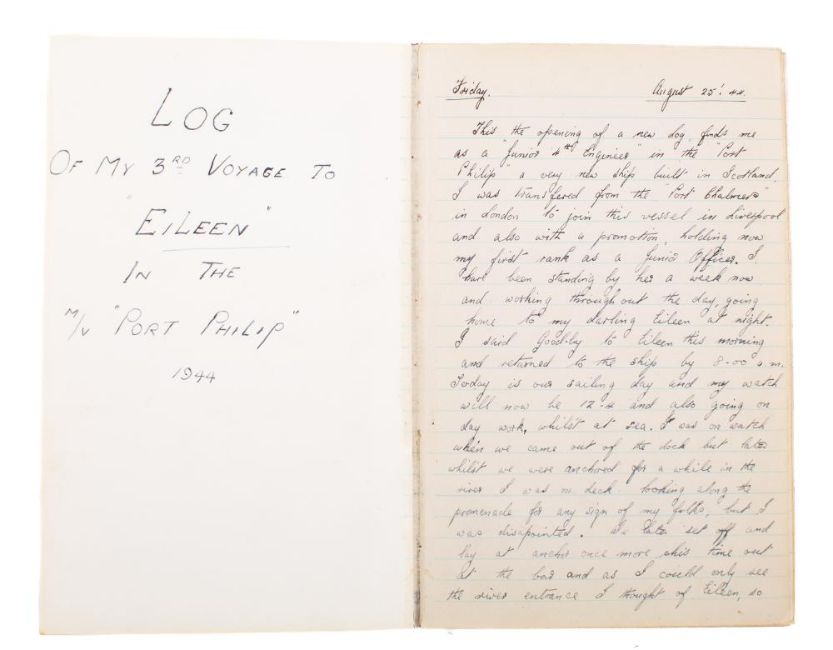 LOG
OF MY 3RD VOYAGE TO
"EILEEN"
IN THE
M/V "PORT PHILIP"
1944
Friday. August 25'. 44.
This the opening of a new log, finds me
as a "Junior 4th Engineer" in the "Port
Philip" a very new ship built in Scotland.
I was transfered from the "Port Chalmers"
in London to join this vessel in Liverpool
and also with a promotion, holding now
my first rank as a Junior Officer. I
have been standing by her a week now
and working throughout the day, going
home to my darling Eileen at night.
I said Goodbye to Eileen this morning
and returned to the ship by 8.00 a.m.
Today is our sailing day and my watch
will now be 12-4 and also going on
day work, whilst at sea. I was on watch
when we came out of the dock but later
whilst we were anchored for a while in the
river I was on deck looking along the
promenade for any sign of my folks, but I
was disapointed. We later set off and
lay at anchor once more this time out
at the bar and as I could only see
the river entrance I thought of Eileen, so